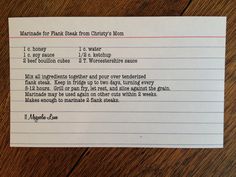 Marinade for Flank Steak from Christy's Mom
1 c. honey 1 c. water
1 c. soy sauce 1/2 c. ketchup
2 beef bouillon cubes 2 T. Worcestershire sauce
Mix all ingredients together and pour over tenderized
flank steak. Keep in fridge up to two days, turning every
8-12 hours. Grill or pan fry, let rest, and slice against the grain.
Marinade may be used again on other cuts within 2 weeks.
Makes enough to marinate 2 flank steaks.
Magnolia Lane